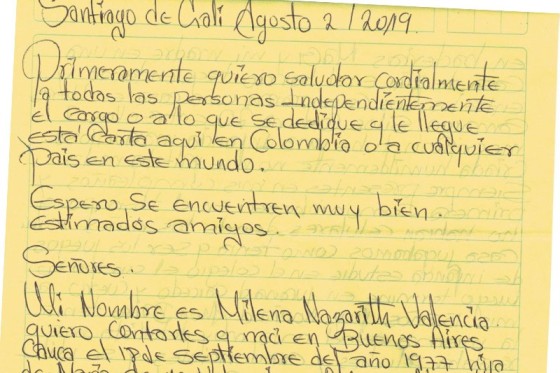 Santiago de Cali Agosto 2/2019.
Primeramente quiero saludar cordialmente
a todas las personas Independientemente
el cargo o a lo que se dedique y le llegue
está Carta aqui en Colombia o a cualquier
País en este mundo.
Espero se encuentren muy bien.
estimados amigos.
Señores.
Mi Nombre es Milena Nazarith Valencia
quiero contarles q naci en Buenos Aires
Cauca el 17 de septiembre del año 1977 hija
de María